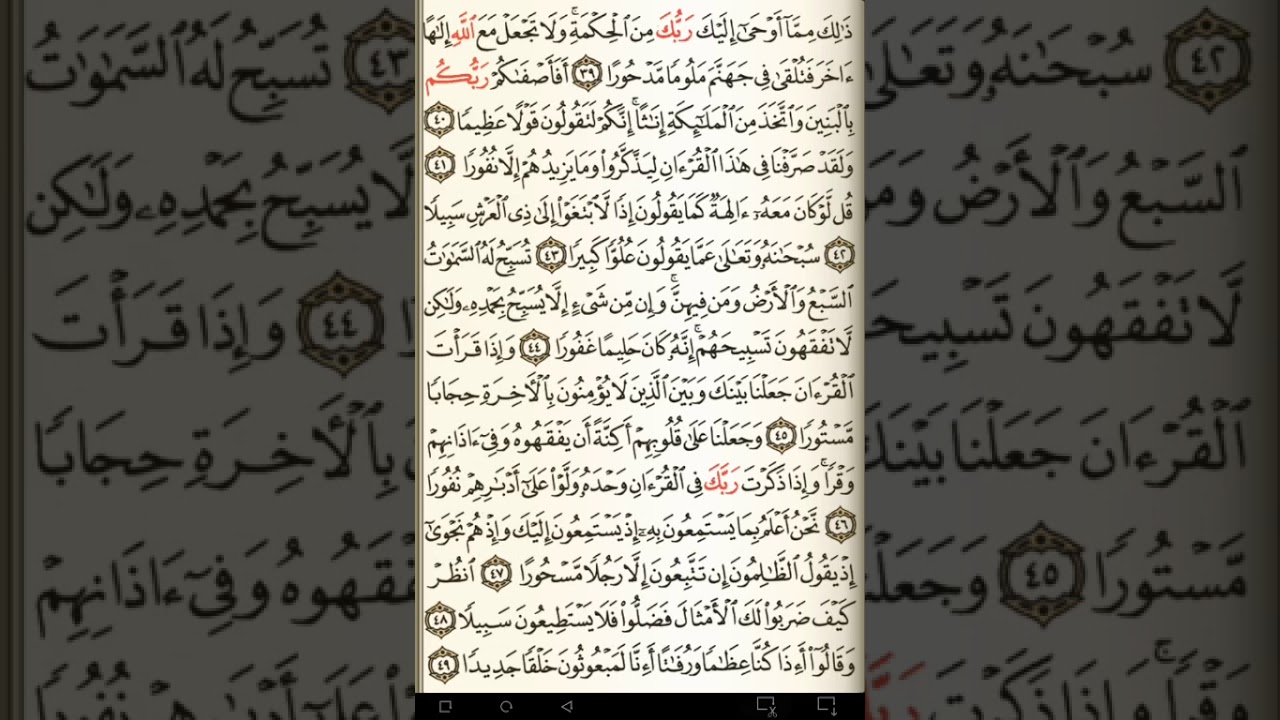 ذَٰلِكَ مِمَّآ أَوْحَىٰٓ إِلَيْكَ رَبُّكَ مِنَ ٱلْحِكْمَةِ ۗ وَلَا تَجْعَلْ مَعَ ٱللَّهِ إِلَٰهًا
ءَاخَرَ فَتُلْقَىٰ فِى جَهَنَّمَ مَلُومًا مَّدْحُورًا ٣٩ أَفَأَصْفَىٰكُمْ رَبُّكُم
بِٱلْبَنِينَ وَٱتَّخَذَ مِنَ ٱلْمَلَٰٓئِكَةِ إِنَٰثًا ۚ إِنَّكُمْ لَتَقُولُونَ قَوْلًا عَظِيمًا ٤٠
وَلَقَدْ صَرَّفْنَا فِى هَٰذَا ٱلْقُرْءَانِ لِيَذَّكَّرُوا۟ وَمَا يَزِيدُهُمْ إِلَّا نُفُورًا ٤١
قُل لَّوْ كَانَ مَعَهُۥٓ ءَالِهَةٌ كَمَا يَقُولُونَ إِذًا لَّٱبْتَغَوْا۟ إِلَىٰ ذِى ٱلْعَرْشِ سَبِيلًا
٤٢ سُبْحَٰنَهُۥ وَتَعَٰلَىٰ عَمَّا يَقُولُونَ عُلُوًّا كَبِيرًا ٤٣ تُسَبِّحُ لَهُ ٱلسَّمَٰوَٰتُ
ٱلسَّبْعُ وَٱلْأَرْضُ وَمَن فِيهِنَّ ۚ وَإِن مِّن شَىْءٍ إِلَّا يُسَبِّحُ بِحَمْدِهِۦ وَلَٰكِن
لَّا تَفْقَهُونَ تَسْبِيحَهُمْ ۗ إِنَّهُۥ كَانَ حَلِيمًا غَفُورًا ٤٤ وَإِذَا قَرَأْتَ
ٱلْقُرْءَانَ جَعَلْنَا بَيْنَكَ وَبَيْنَ ٱلَّذِينَ لَا يُؤْمِنُونَ بِٱلْـَٔاخِرَةِ حِجَابًا
مَّسْتُورًا ٤٥ وَجَعَلْنَا عَلَىٰ قُلُوبِهِمْ أَكِنَّةً أَن يَفْقَهُوهُ وَفِىٓ ءَاذَانِهِمْ
وَقْرًا ۚ وَإِذَا ذَكَرْتَ رَبَّكَ فِى ٱلْقُرْءَانِ وَحْدَهُۥ وَلَّوْا۟ عَلَىٰٓ أَدْبَٰرِهِمْ نُفُورًا
٤٦ نَّحْنُ أَعْلَمُ بِمَا يَسْتَمِعُونَ بِهِۦٓ إِذْ يَسْتَمِعُونَ إِلَيْكَ وَإِذْ هُمْ نَجْوَىٰٓ
إِذْ يَقُولُ ٱلظَّٰلِمُونَ إِن تَتَّبِعُونَ إِلَّا رَجُلًا مَّسْحُورًا ٤٧ ٱنظُرْ
كَيْفَ ضَرَبُوا۟ لَكَ ٱلْأَمْثَالَ فَضَلُّوا۟ فَلَا يَسْتَطِيعُونَ سَبِيلًا ٤٨
وَقَالُوٓا۟ أَءِذَا كُنَّا عِظَٰمًا وَرُفَٰتًا أَءِنَّا لَمَبْعُوثُونَ خَلْقًا جَدِيدًا ٤٩